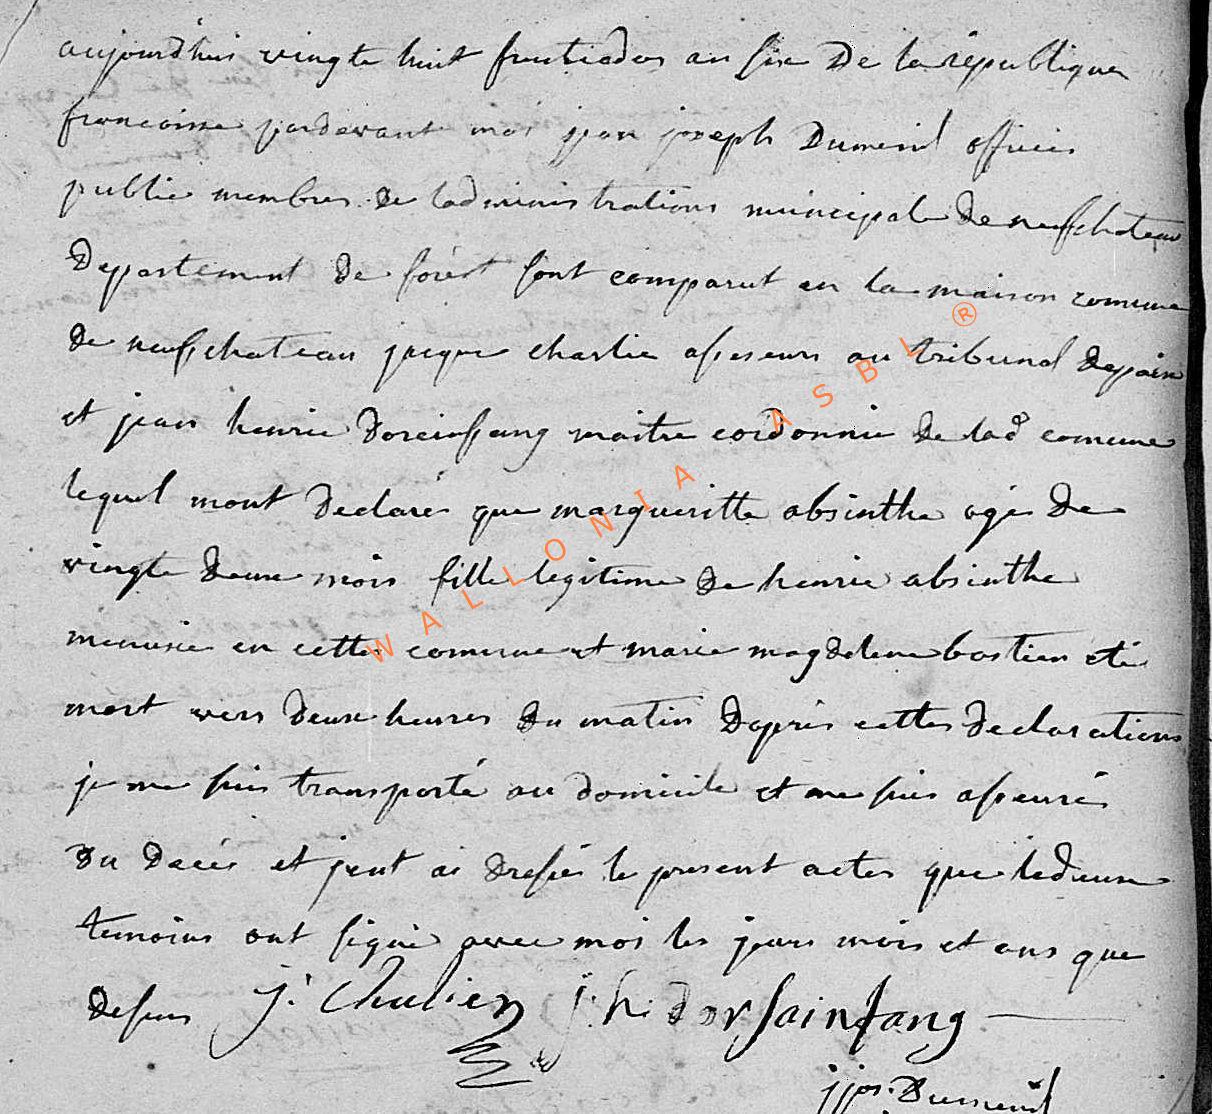 aujourdhui vingte huit fructiedor an six De la république
francoisse pardevant moi jean joseph Dumenil officier
public membres de ladministrations municipale De neufchateau
Departement De forêt sont comparut en la maison comune
De neufchateau jacque charlié assesseurs au tribunal depaix
et jean henrie Dorcinfang maitre cordonnie De lad comune
lequel mont Declaré que margueritte absinthe agé De
vingte deux mois fille legitime De henrie absinthe
menuisie en cette comune et marie magdelene bastien eté
mort vers deux heures Du matin Daprés cettes declarations
je me suis transporté au domicile et me suis asseuré
Du decés et jent ai dressés le present actes que lédeux
temoins ont signé avec moi les jours mois et ans que
dessus j. Chalien j. h. dorsainfang
jjos. Dumenil
WALLONIA ASBL ®